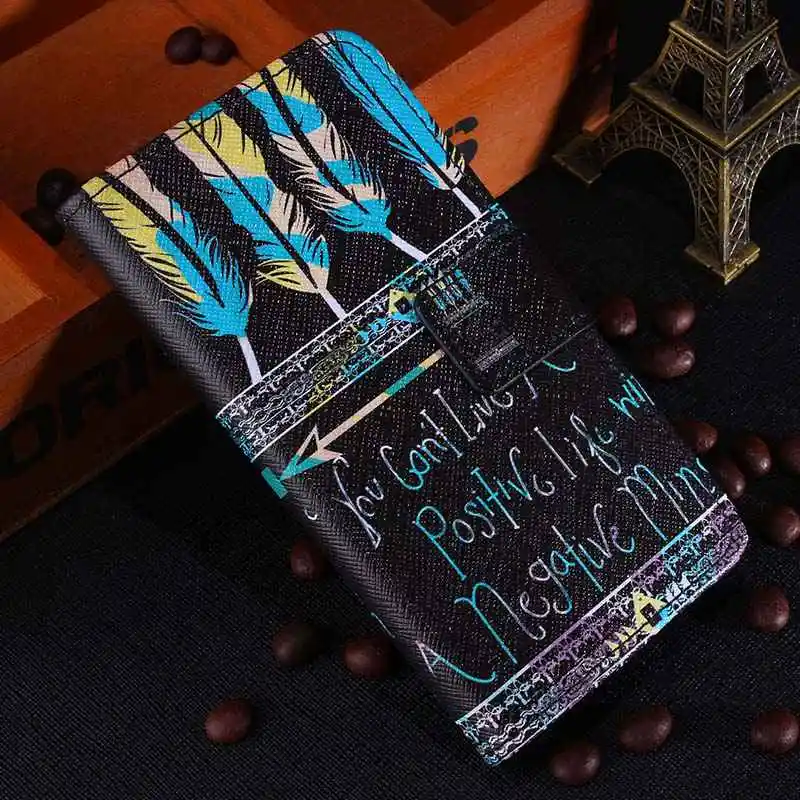 You Can't Live A
Positive life wi
A Negative Mind